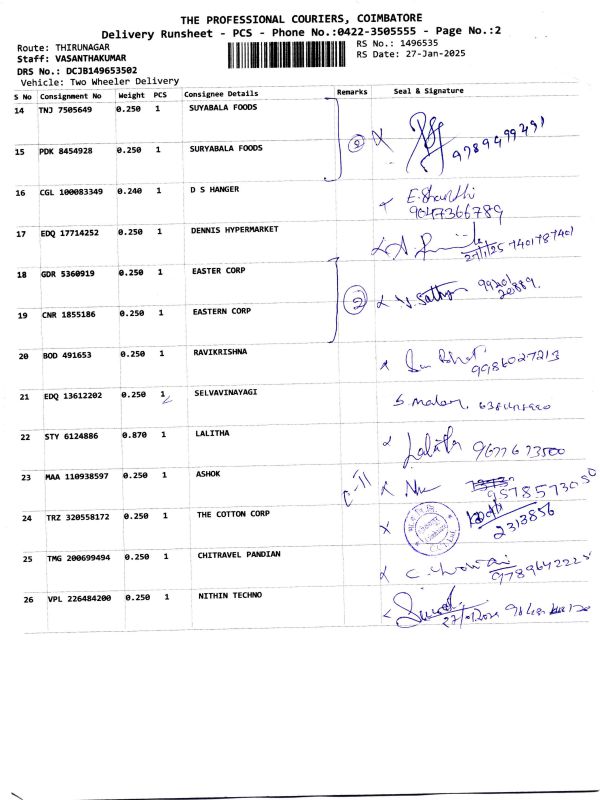 THE PROFESSIONAL COURIERS, COIMBATORE
Delivery Runsheet - PCS - Phone No.:0422-3505555 - Page No.:2
Route: THIRUNAGAR RS No.: 1496535
Staff: VASANTHAKUMAR RS Date: 27-Jan-2025
DRS No.: DCJB149653502
Vehicle: Two Wheeler Delivery
S No Consignment No Weight PCS Consignee Details Remarks Seal & Signature
14 TNJ 7505649 0.250 1 SUYABALA FOODS
2 X 9789499291
15 PDK 8454928 0.250 1 SURYABALA FOODS
16 CGL 100083349 0.240 1 D S HANGER E. Shanthi
9047366789
17 EDQ 17714252 0.250 1 DENNIS HYPERMARKET
27/1/25 7401787401
18 GDR 5360919 0.250 1 EASTER CORP
2 V. Sathya 99201 20889
19 CNR 1855186 0.250 1 EASTERN CORP
20 BOD 491653 0.250 1 RAVIKRISHNA
9986027213
21 EDQ 13612202 0.250 1 SELVAVINAYAGI S. malar,
22 STY 6124886 0.870 1 LALITHA Lalitha 9677673500
23 MAA 110938597 0.250 1 ASHOK C-11
9578573050
24 TRZ 320558172 0.250 1 THE COTTON CORP X
2313856
25 TMG 200699494 0.250 1 CHITRAVEL PANDIAN
9789642225
26 VPL 226484200 0.250 1 NITHIN TECHNO